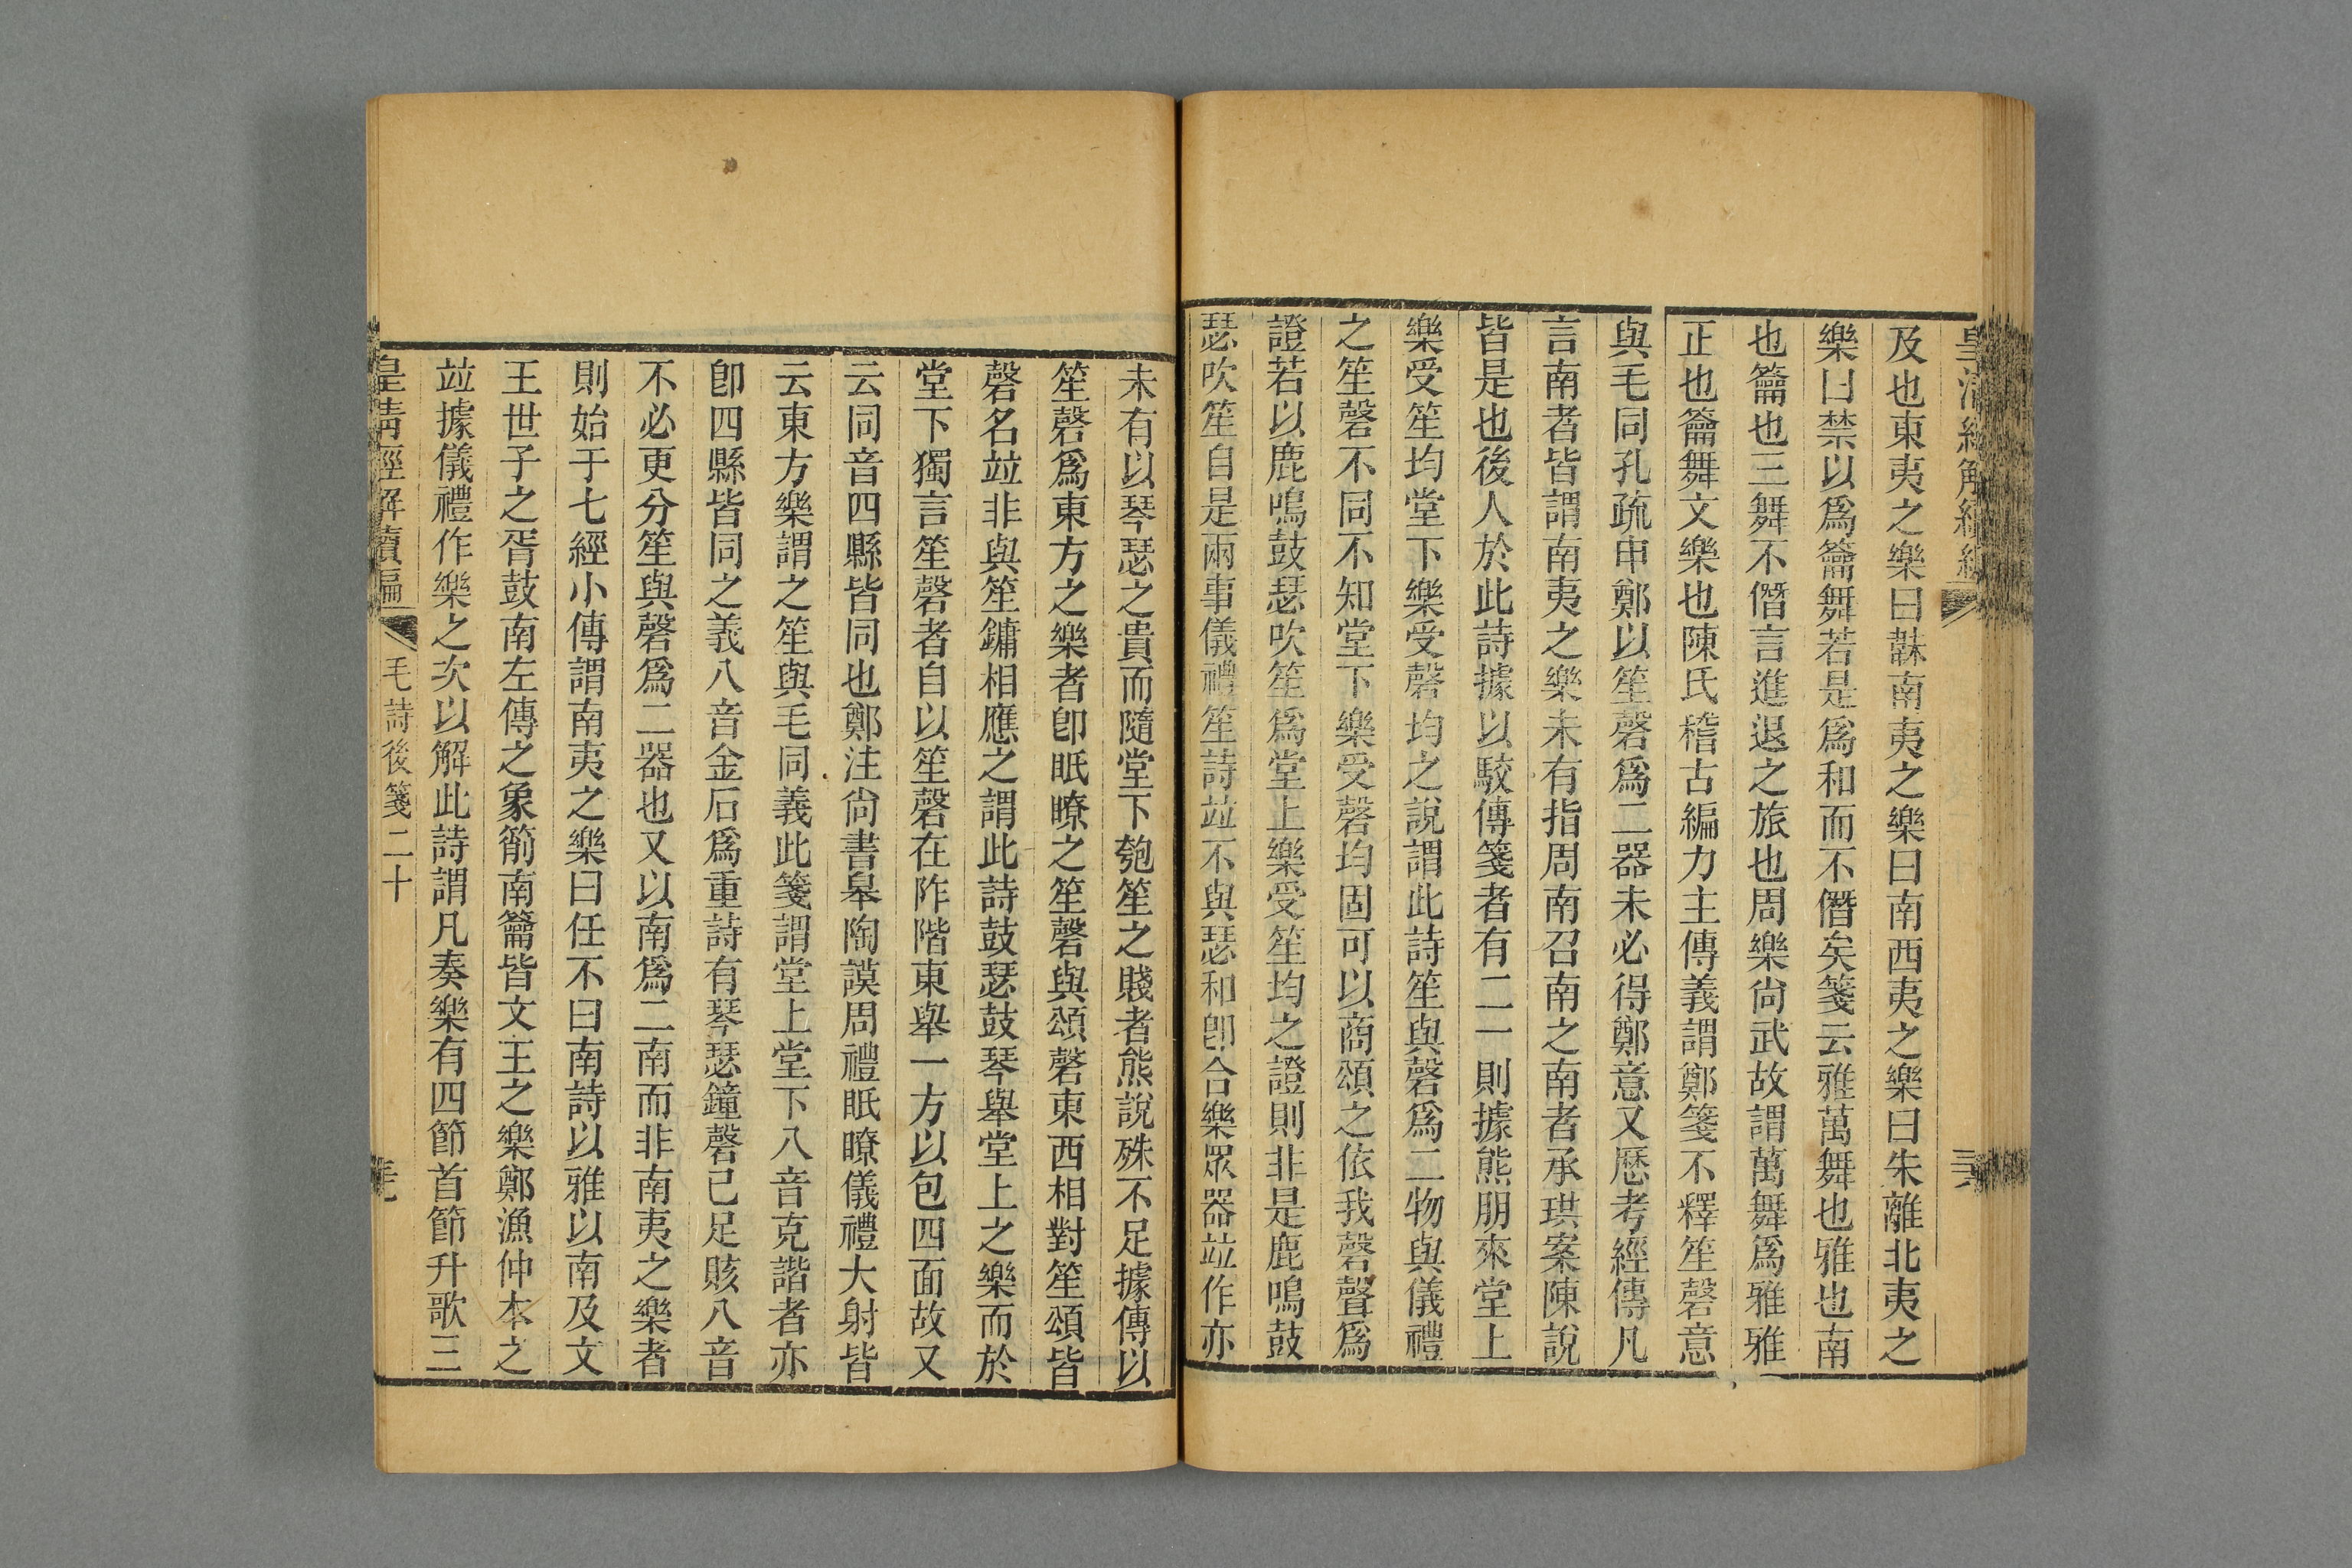 皇清經解續編
及也東夷之樂曰韎南夷之樂曰南西夷之樂曰朱離北夷之
樂曰禁以爲籥舞若是爲和而不僭矣箋云雅萬舞也雅也南
也籥也三舞不僭言進退之旅也周樂尙武故謂萬舞爲雅雅
正也籥舞文樂也陳氏稽古編力主傳義謂鄭箋不釋笙磬意
與毛同孔疏申鄭以笙磬爲二器未必得鄭意又歷考經傳凡
言南者皆謂南夷之樂未有指周南召南之南者承珙案陳說
皆是也後人於此詩據以駮傳箋者有二一則據熊朋來堂上
樂受笙均堂下樂受磬均之說謂此詩笙與磬爲二物與儀禮
之笙磬不同不知堂下樂受磬均固可以商頌之依我磬聲爲
證若以鹿鳴鼓瑟吹笙爲堂上樂受笙均之證則非是鹿鳴鼓
瑟吹笙自是兩事儀禮笙詩竝不與瑟和卽合樂眾器竝作亦
未有以琴瑟之貴而隨堂下匏笙之賤者熊說殊不足據傳以
笙磬爲東方之樂者卽眡瞭之笙磬與頌磬東西相對笙頌皆
磬名竝非與笙鏞相應之謂此詩鼓瑟鼓琴舉堂上之樂而於
堂下獨言笙磬者自以笙磬在阼階東舉一方以包四面故又
云同音四縣皆同也鄭注尙書皋陶謨周禮眡瞭儀禮大射皆
云東方樂謂之笙與毛同義此箋謂堂上堂下八音克諧者亦
卽四縣皆同之義八音金石爲重詩有琴瑟鐘磬已足賅八音
不必更分笙與磬爲二器也又以南爲二南而非南夷之樂者
則始于七經小傳謂南夷之樂曰任不曰南詩以雅以南及文
王世子之胥鼓南左傳之象箾南籥皆文王之樂鄭漁仲本之
竝據儀禮作樂之次以解此詩謂凡奏樂有四節首節升歌三
皇清經解續編 毛詩後箋二十